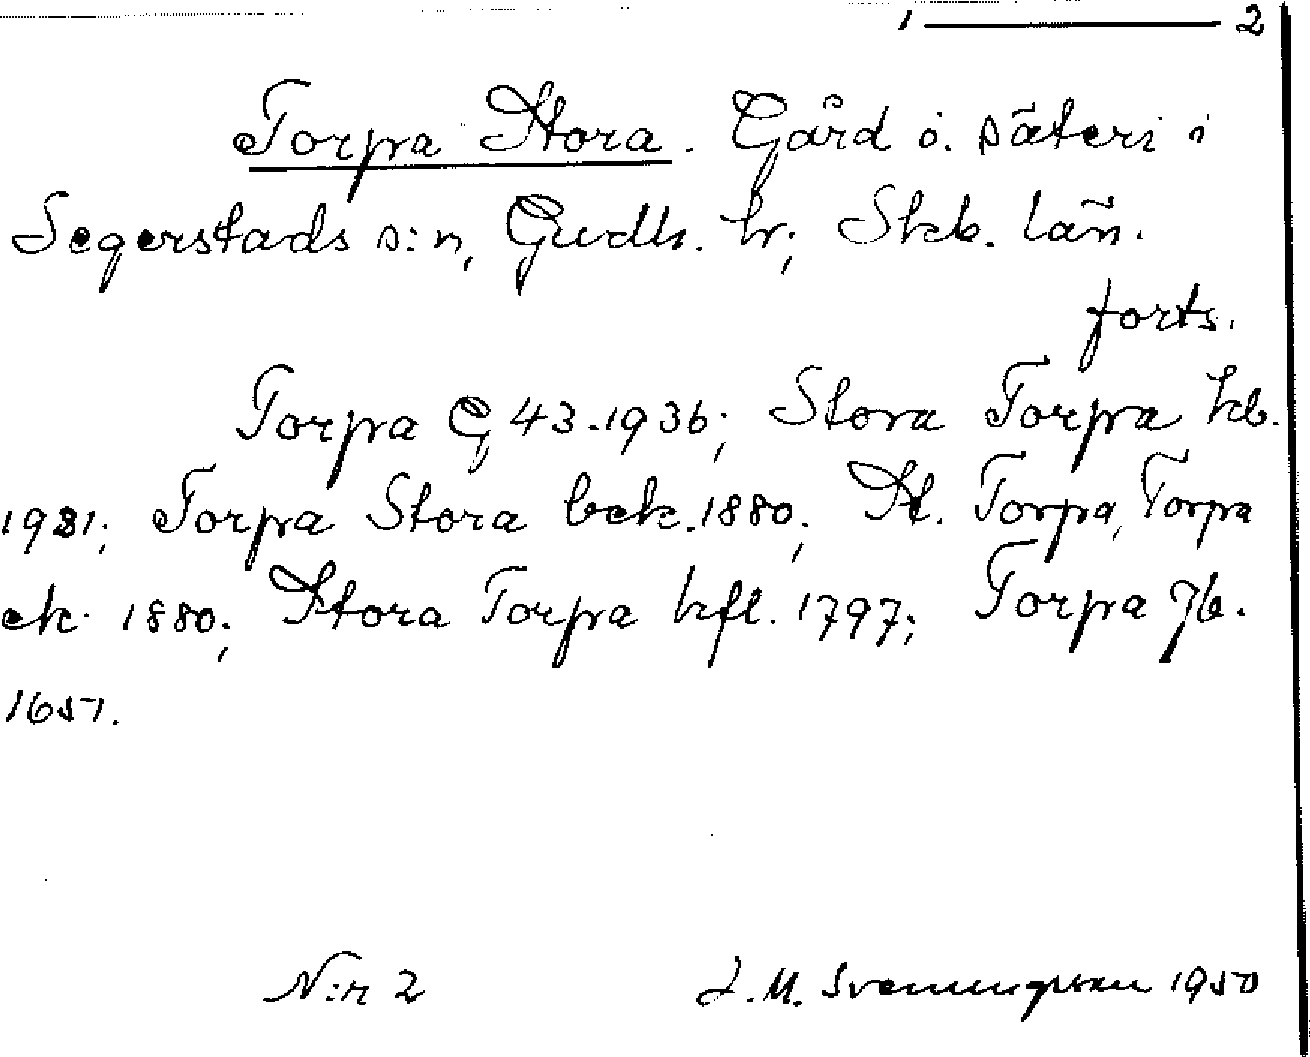 1 ——— 2
Torpa Stora. Gård o. säteri i
Segerstads s:n, Gudh. hr; Skb. län.
forts.
Torpa G 43.1936; Stora Torpa kb.
1931; Torpa Stora bek. 1880; St. Torpa, Torpa
ek. 1880; Stora Torpa hfl. 1797; Torpa Jb.
1651.
N:r 2 J. M. Svenungsson 1950